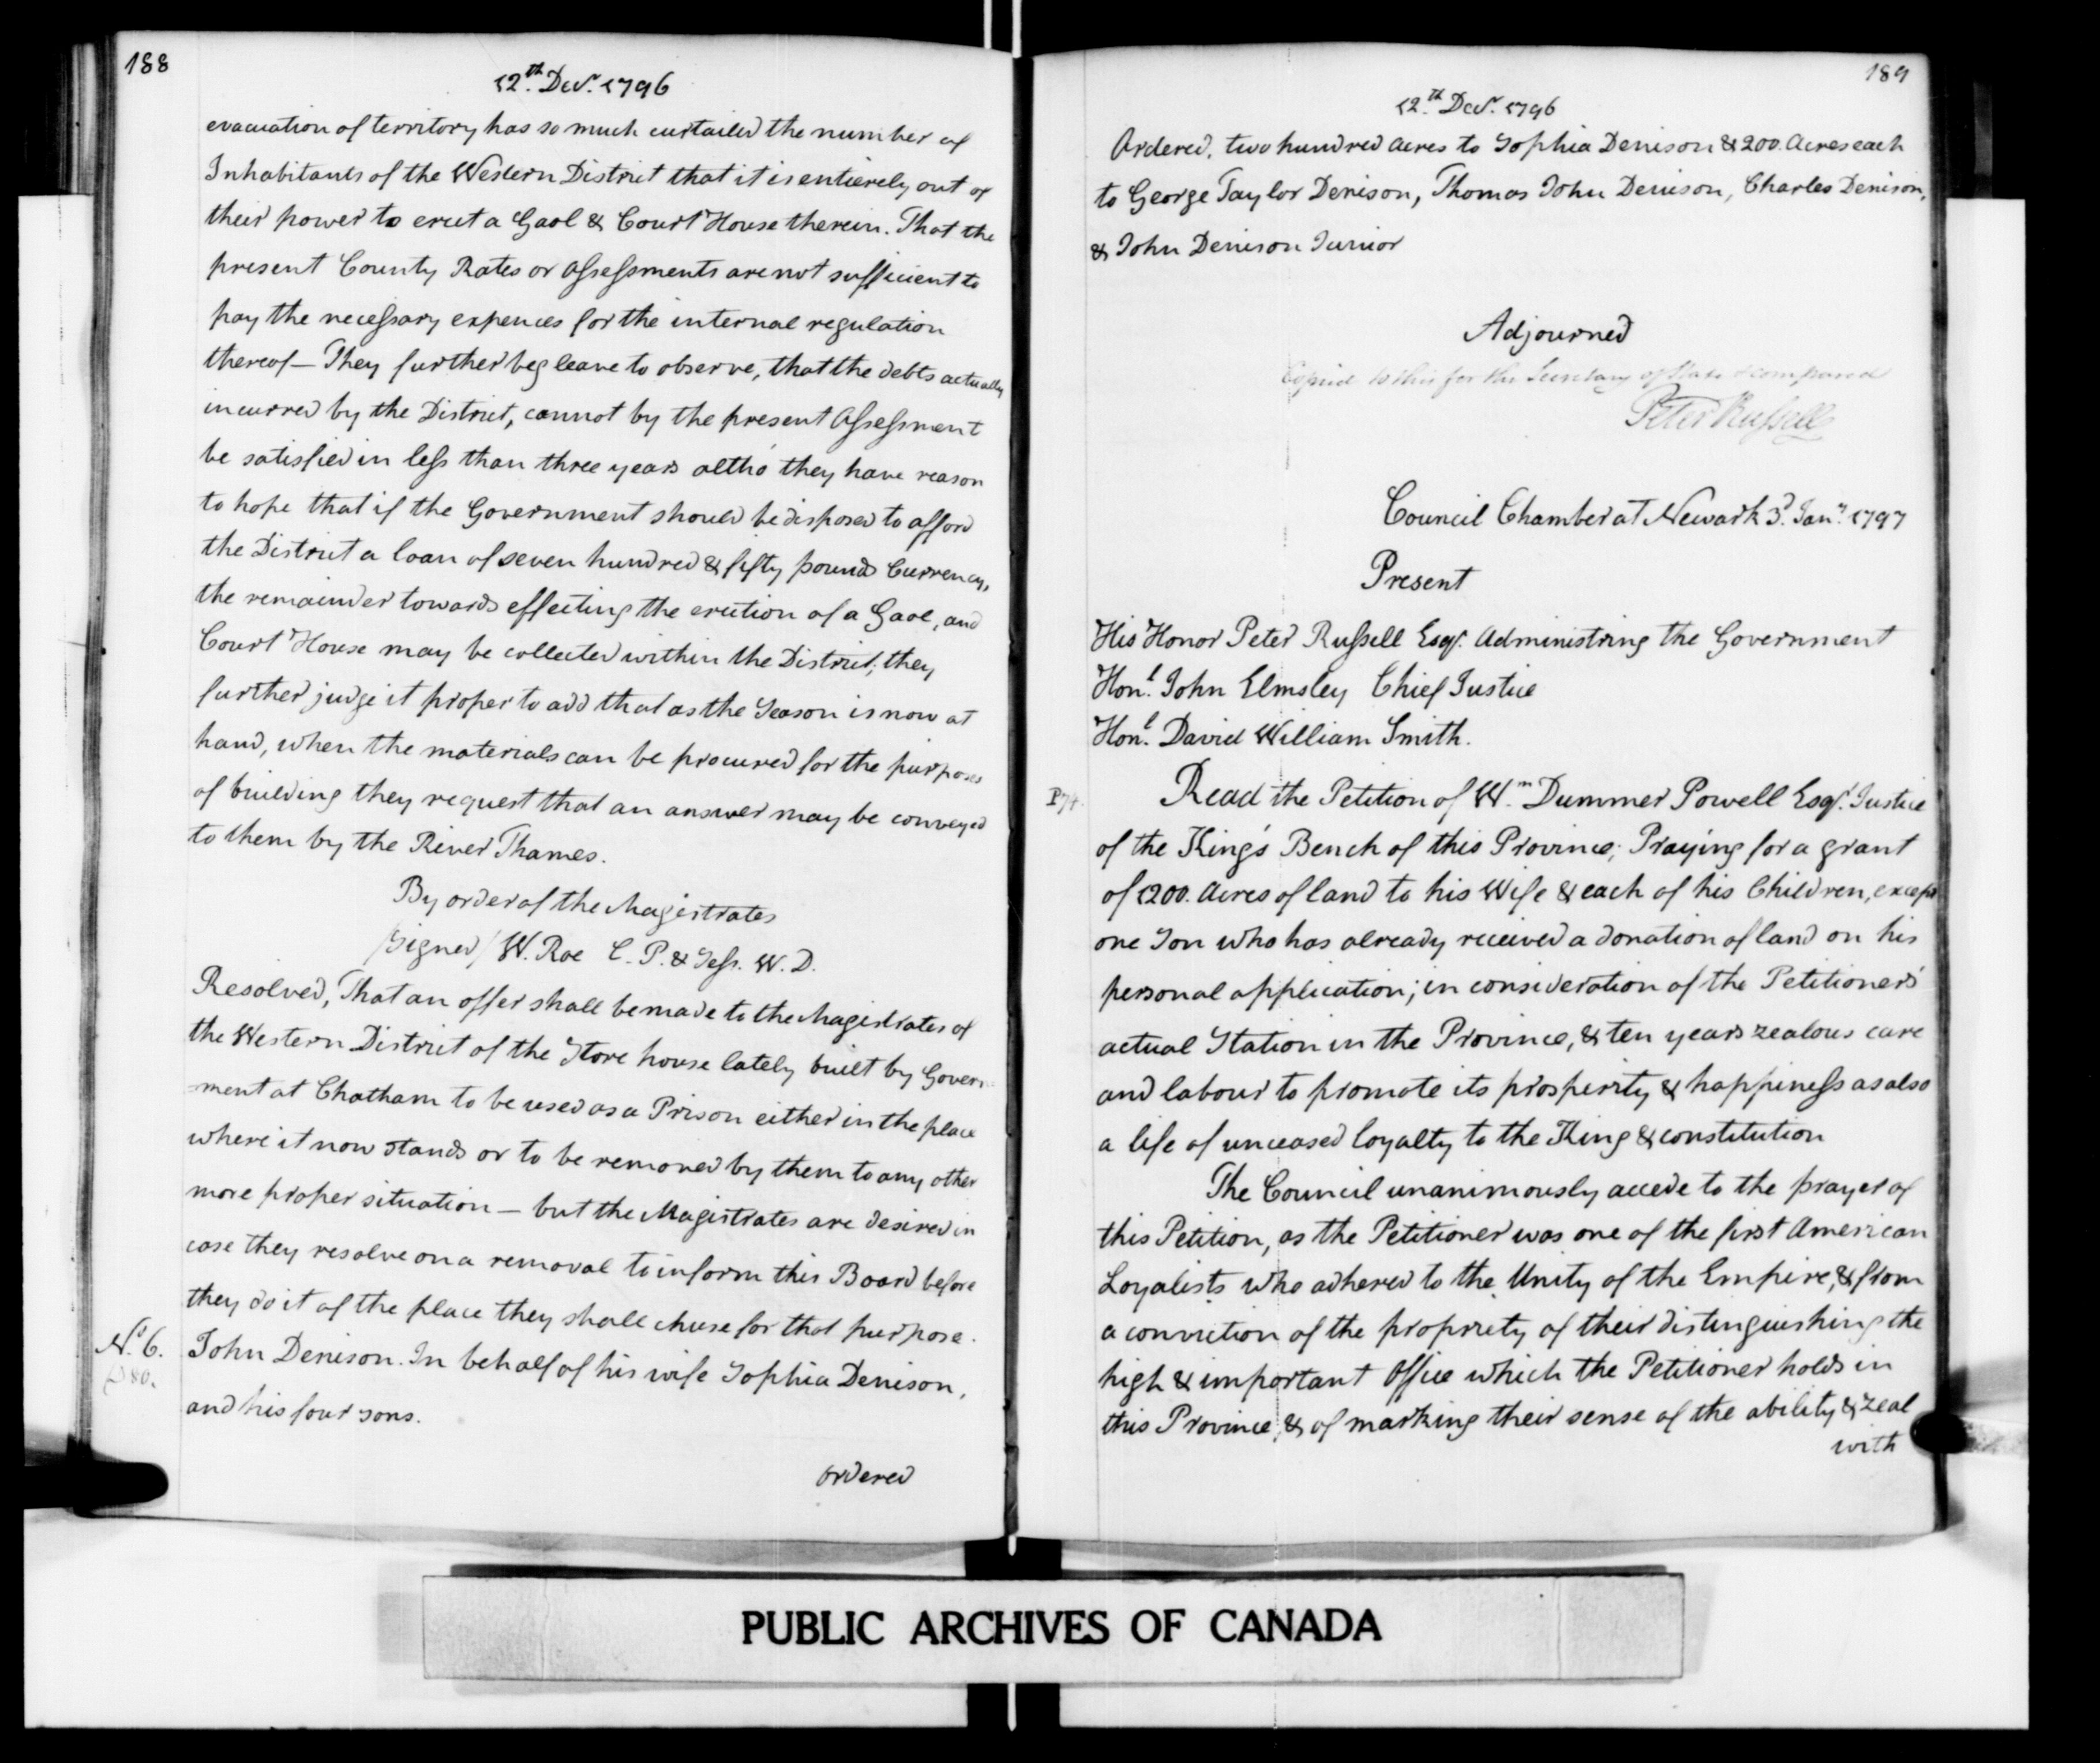 188
12th Decr. 1796
evacuation of territory has so much curtailed the number of
Inhabitants of the Western District that it is entierely out of
their power to erect a Gaol & Court House therein. That the
present County Rates or Assessments are not sufficient to
pay the necessary expences for the internal regulation
thereof — They further beg leave to observe, that the debts actually
incurred by the District, cannot by the present Assessment
be satisfied in less than three years altho' they have reason
to hope that if the Government should be disposed to afford
the District a loan of seven hundred & fifty pounds Currency,
the remainder towards effecting the erection of a Gaol, and
Court House may be collected within the District; they
further judge it proper to add that as the Season is now at
hand, when the materials can be procured for the purposes
of building they request that an answer may be conveyed
to them by the River Thames.
By order of the Magistrates
/Signed/ W. Roe C. P. & Sess. W. D.
Resolved, That an offer shall be made to the Magistrates of
the Western District of the Store house lately built by Govern-
-ment at Chatham to be used as a Prison either in the place
where it now stands or to be removed by them to any other
more proper situation — but the Magistrates are desired in
case they resolve on a removal to inform this Board before
they do it of the place they shall chuse for that purpose.
No. 6. John Denison. In behalf of his wife Sophia Denison,
and his four sons.
ordered
189
12th Decr. 1796
Ordered, two hundred acres to Sophia Denison & 200. Acres each
to George Taylor Denison, Thomas John Denison, Charles Denison,
& John Denison Junior
Adjourned
Copied to this for the Secretary of State & compared
Peter Russell
Council Chamber at Newark 3d. Jany. 1797
Present
His Honor Peter Russell Esqr. Administring the Government
Honl. John Elmsley Chief Justice
Honl. David William Smith.
Read the Petition of Wm. Dummer Powell Esqr. Justice
of the King's Bench of this Province; Praying for a grant
of 1200. Acres of land to his Wife & each of his Children, except
one Son who has already received a donation of land on his
personal application; in consideration of the Petitioner's
actual Station in the Province, & ten years zealous care
and labour to promote its prosperity & happiness as also
a life of unceased loyalty to the King & constitution
The Council unanimously accede to the prayer of
this Petition, as the Petitioner was one of the first American
Loyalists who adhered to the Unity of the Empire, & from
a conviction of the propriety of their distinguishing the
high & important Office which the Petitioner holds in
this Province, & of marking their sense of the ability & zeal
with
PUBLIC ARCHIVES OF CANADA